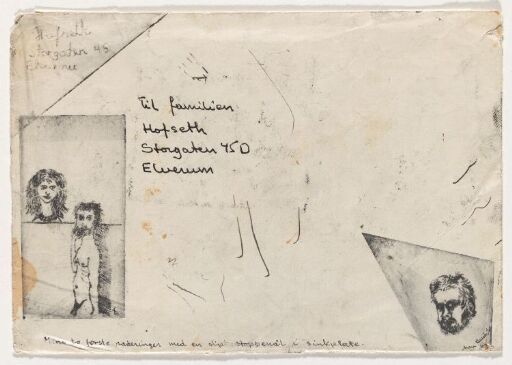 Hofseth
Storgaten 45
Elverum
Til familien
Hofseth
Storgaten 45D
Elverum
Mine to første raderinger med en slipt stoppenål i sinkplate.